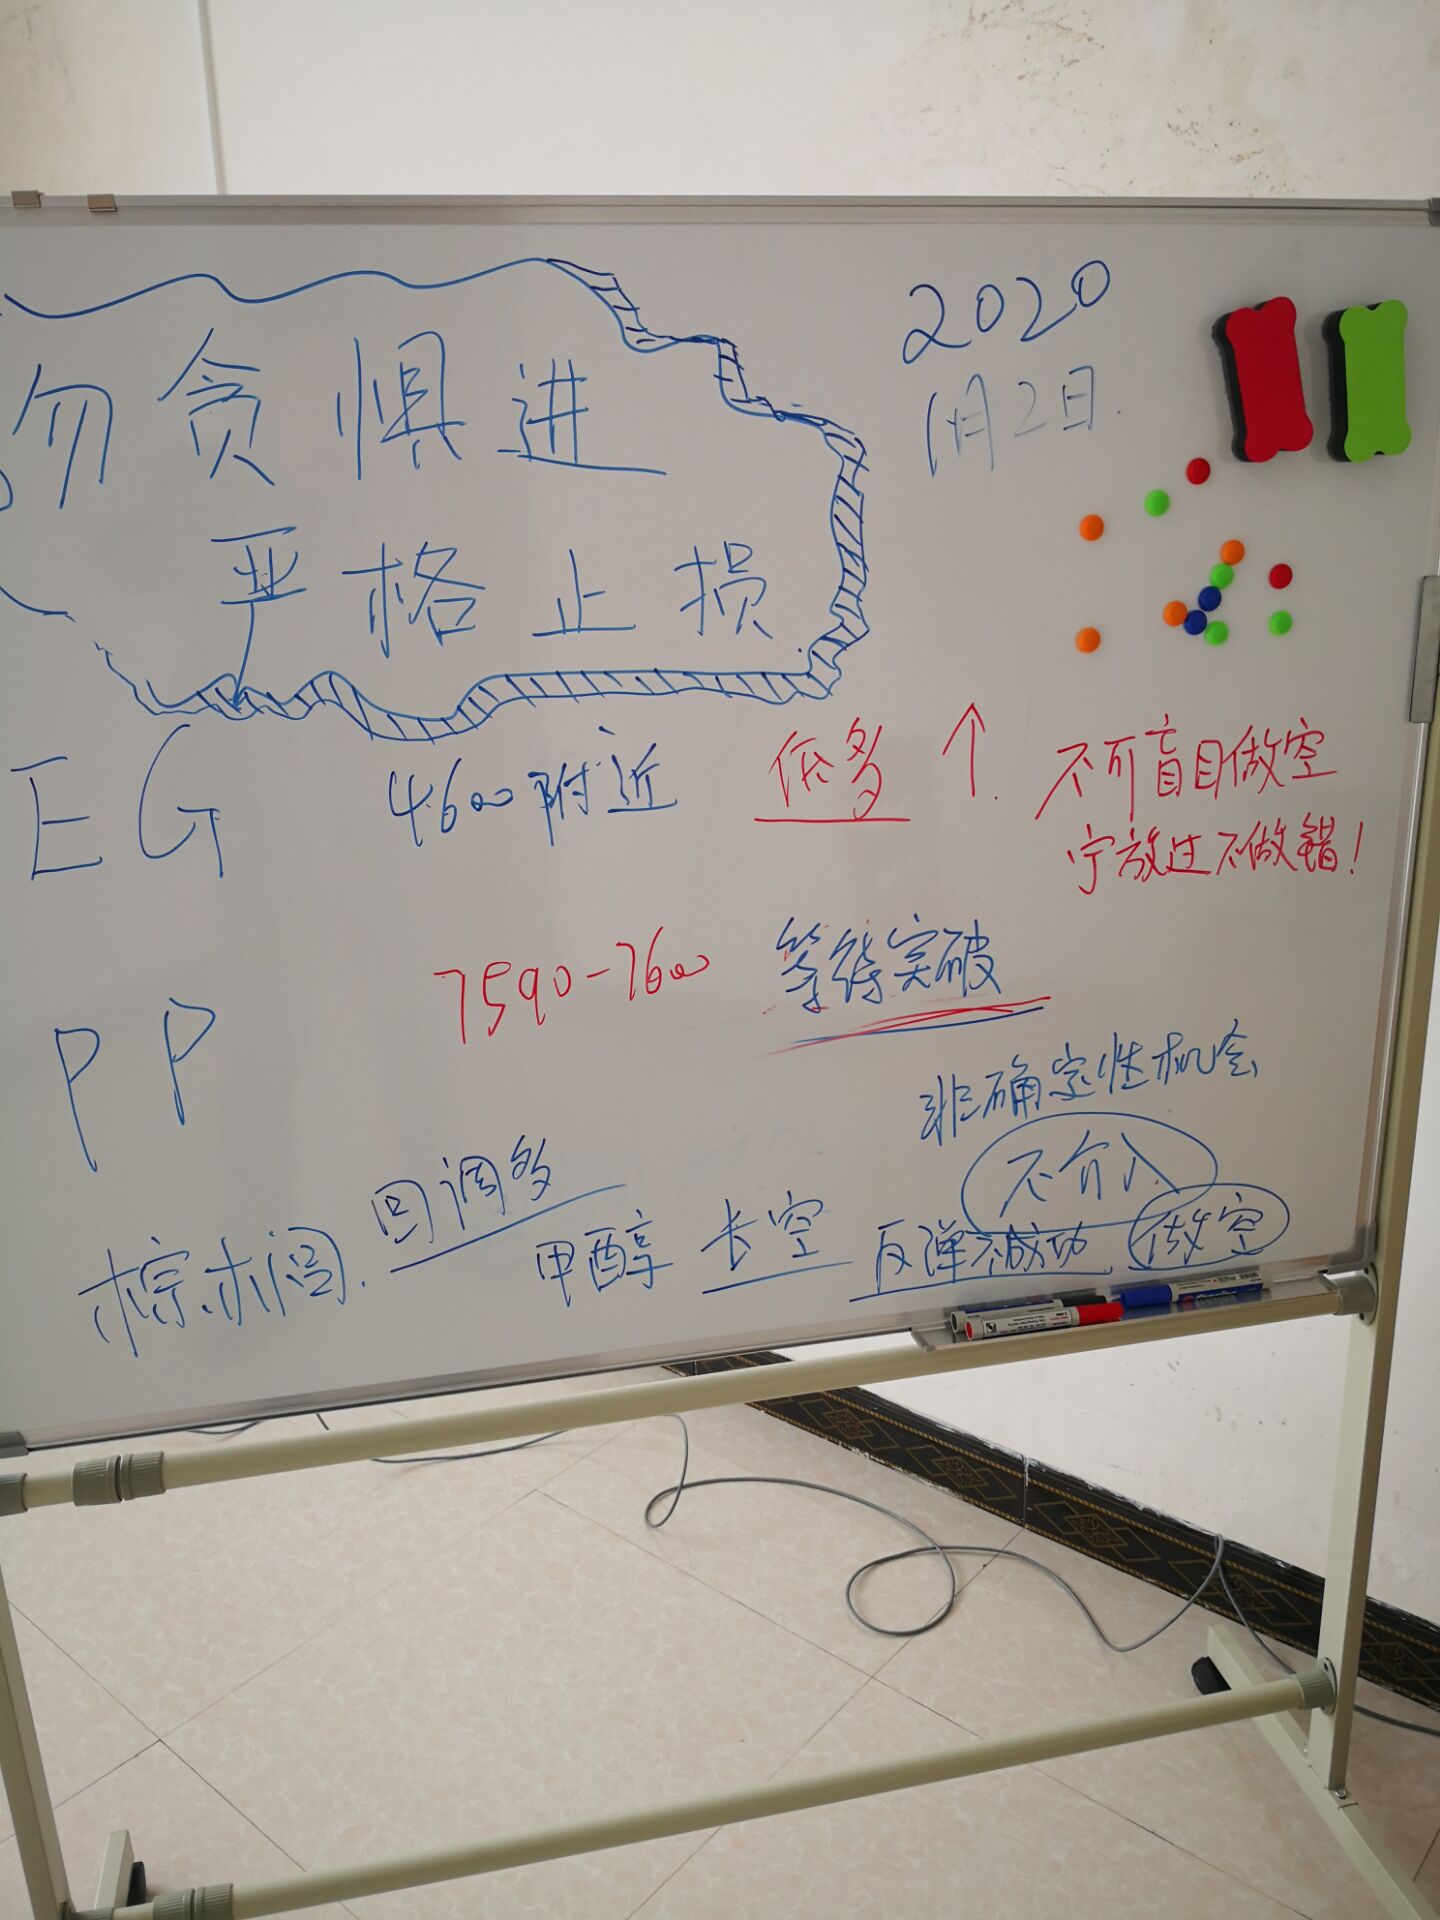 勿贪惧进
严格止损
2020
1月2日.
EG 4600附近 低多 ↑ 不可盲目做空
宁放过不做错!
PP 7590-7600 等待突破
非确定性机会
不介入
棕榈. 回调多
甲醇 长空 反弹不成功 做空